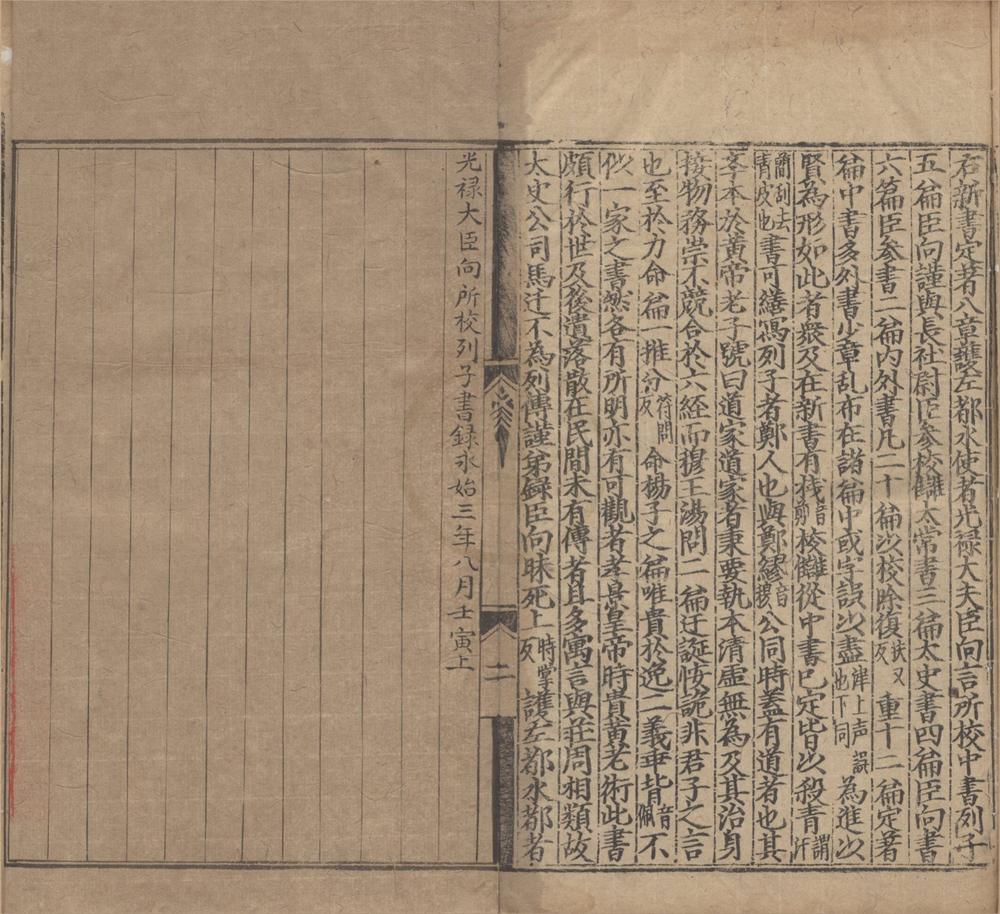 右新書定著八章護左都水使者光禄大夫臣向言所校中書列子
五篇臣向謹與長社尉臣參校讎太常書三篇太史書四篇臣向書
六篇臣參書二篇内外書凡二十篇以校除復扶又反重十二篇定著八
篇中書多外書少章乱布在諸篇中或字誤以盡津上声也下同誤為進以
賢為形如此者衆及在新書有棧音剪校讎從中書已定皆以殺青謂汗
簡刮去青皮也書可繕寫列子者鄭人也與鄭繆音穆公同時蓋有道者也其
学本於黄帝老子號曰道家道家者秉要執本清虛無為及其治身
接物務崇不競合於六経而穆王湯問二篇迂誕恢詭非君子之言
也至於力命篇一推分符問反命楊子之篇唯貴放逸二義乖背音佩不
似一家之書然各有所明亦有可觀者孝景皇帝時貴黄老術此書
頗行於世及後遺落散在民間未有傳者且多寓言與莊周相類故
太史公司馬迁不為列傳謹第録臣向昧死上時掌反護左都水都者
光禄大臣向所校列子書録永始三年八月壬寅上
二